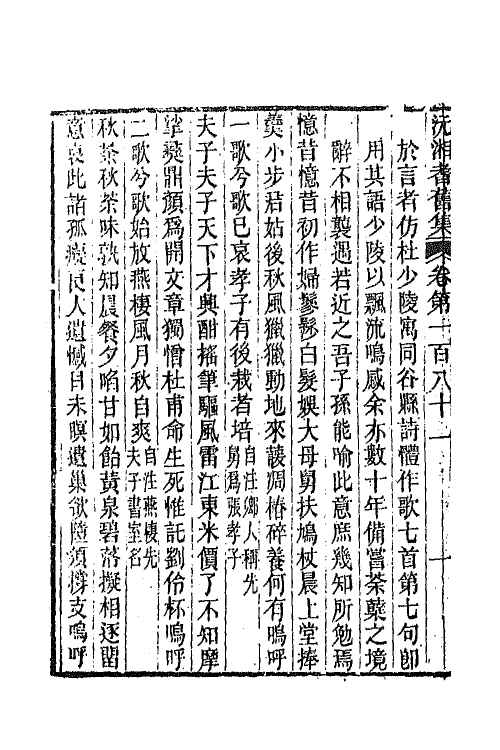 沅湘耆舊集 卷第一百八十一 一
於言者仿杜少陵寓同谷縣詩體作歌七首第七句卽
用其語少陵以飄流鳴感余亦數十年備嘗荼蘗之境
辭不相襲遇若近之吾子孫能喻此意庶幾知所勉焉
憶昔憶昔初作婦鬖鬖白髮娛大母舅扶鳩杖晨上堂捧
羹小步君姑後秋風獵獵動地來護凋椿碎養何有嗚呼
一歌兮歌已哀孝子有後栽者培自注鄉人稱先舅爲張孝子
夫子夫子天下才興酣搖筆驅風雷江東米價了不知摩
挲彝鼎顏爲開文章獨憎杜甫命生死惟託劉伶杯嗚呼
二歌兮歌始放燕棲風月秋自爽自注燕棲先夫子書室名
秋荼秋荼味孰知晨餐夕啗甘如飴黃泉碧落擬相逐閨
意哀此諸孤癡民人遺憾目未瞑遺巢欲墮須撐支嗚呼